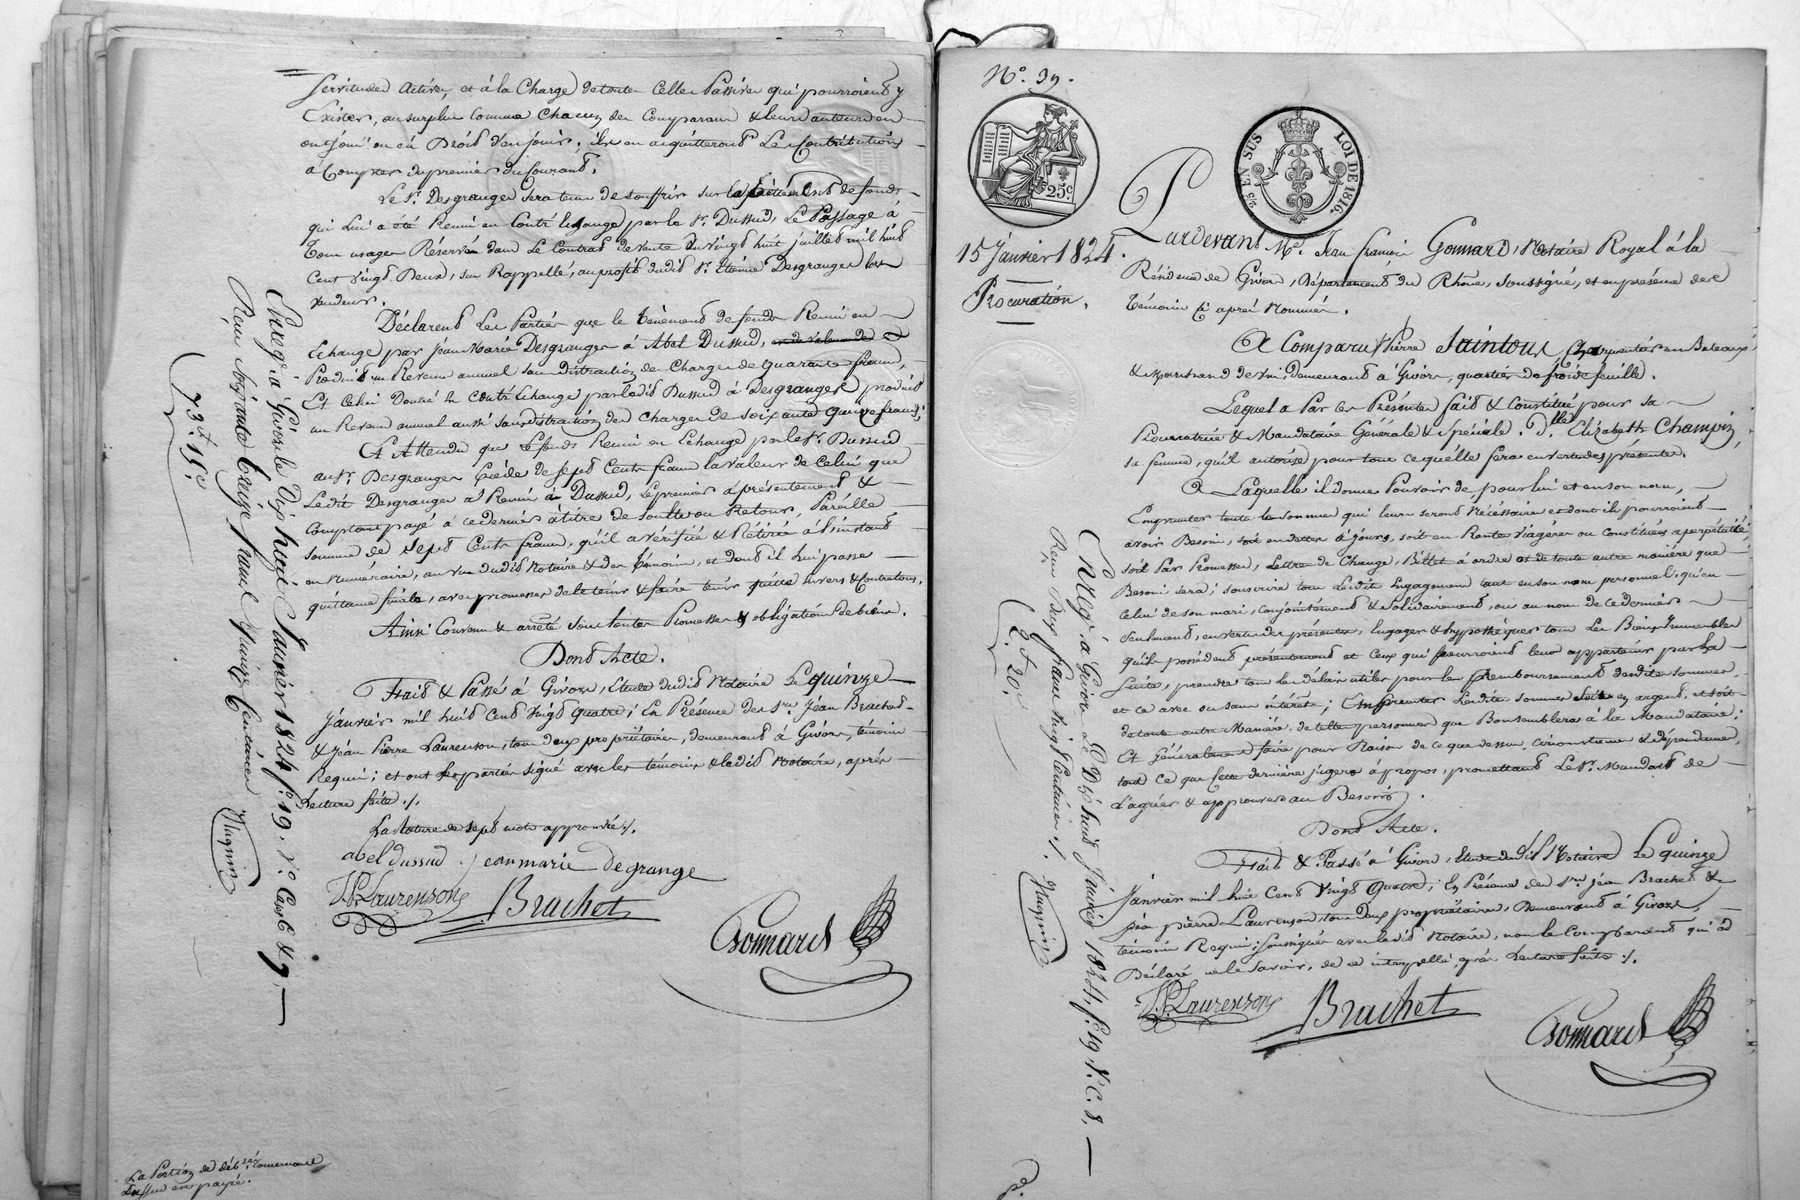 servitudes actives, et à la Charge de toutes celles Passives qui pourroient y
Exister, au surplus comme chacun des Comparans & leurs auteurs en
ont joui ou eu Droit d'en jouir. ils en acquitteront Les Contributions
à Compter du premier du Courant.
Le Sr. Desgranger sera tenu de souffrir sur le tènement de fonds
qui Lui a été Remis en Contr'échange par le Sr. Dussud, Le Passage à
Tous usages Réservé dans Le Contrat de vente du vingt huit juillet mil huit
Cent vingt Deux, sus Rappellé, au profit dudit Sr. Etienne Desgranger
vendeur.
Déclarent Les Parties que le tènement de fonds Remis en
Echange par Jean Marie Desgranger à Abel Dussud,
Produit un Revenu annuel sans distraction des Charges de quarante francs,
Et Celui Donné en Contr'Echange par Ledit Dussud à Desgranger produit
un Revenu annuel aussi sans distraction des Charges de soixante quinze francs;
Et Attendu que le fonds Remis en Echange par le Sr. Dussud
au Sr. Desgranger Excède de sept Cents francs la valeur de Celui que
Ledit Desgranger a Remis à Dussud, le premier a présentement &
Comptant payé à ce dernier à titre de soulte ou Retour, Pareille
somme de sept Cents francs, qu'il a vérifiée & Retirée à l'instant
en Numéraire, au vu dudit Notaire & des Témoins, et dont il lui passe
quittance finale, avec promesse de le tenir & faire tenir quitte envers & Contre tous.
Ainsi Convenu & arrêté sous toutes Promesses & obligations de biens.
Dont Acte.
Fait & Passé à Givors, Etude dudit Notaire Le quinze
Janvier mil huit Cent vingt quatre; En Présence des Srs. Jean Brachet
& Jean Pierre Laurenson, tous deux propriétaires, demeurant à Givors, témoins
Requis; et ont les parties signé avec les témoins & ledit Notaire, après
Lecture faite ./.
La Rature de sept mots approuvée ./.
abel dussud jean marie degrange
J.P. Laurenson Brachet
Gonnard
Enregé. à Givors le Dix huit Janvier 1824 fo. 19. Vo. Case 6 & 9,
Reçu soixante treize francs quinze Centimes
73f. 15c
La Portion de débours concernant
Dussud est payée.
No. 39.
25c.
2/5 EN SUS LOI DE 1816.
15 Janvier 1824.
Procuration.
Pardevant Me. Jean François Gonnard, Notaire Royal à la
Résidence de Givors, Département du Rhône, soussigné, et en présence des
témoins ci après Nommés.
A Comparu Pierre Saintour, Charpentier en Bateaux
& Marchand de vin, demeurant à Givors, quartier de froide feuille.
Lequel a Par ces Présentes fait & Constitué pour sa
Procuratrice & Mandataire Générale & Spéciale. Dlle. Elizabeth Champin,
sa femme, qu'il autorise pour tout ce qu'elle fera en vertu des présentes.
A Laquelle il donne Pouvoir de pour lui et en son nom,
Emprunter toutes les sommes qui leur seront Nécessaires et dont ils pourroient
avoir Besoin, soit en dettes à jours, soit en Rente viagère ou Constituée à perpétuité;
soit Par Promesses, Lettres de Change, Billets à ordre et de toute autre manière que
Besoin sera; souscrire tous lesdits Engagemens tant en son nom personnel, qu'en
Celui de son mari, conjointement & solidairement, ou au nom de ce dernier
seulement, en vertu des présentes, Engager & hypothéquer tous Les Biens Immeubles
qu'ils possèdent présentement et Ceux qui pourroient leur appartenir par la
suite, prendre tous les délais utiles pour le Remboursement desdites sommes,
et ce avec ou sans intérêts; Emprunter lesdites sommes soit en argent, et soit
de toute autre Manière, de telle personnes que Bon semblera à la Mandataire;
Et Généralement faire pour Raison de ce que dessus, circonstances & dépendances,
tout Ce que Cette dernière jugera à propos, promettant Le Sr. Mandant de
L'agréer & approuver au Besoin.
Dont Acte.
Fait & Passé à Givors, Etude dudit Notaire Le quinze
Janvier mil huit Cent vingt Quatre; En Présence des Srs. Jean Brachet &
Jean pierre Laurenson, tous deux propriétaires, Demeurant à Givors,
témoins Requis, soussignés avec ledit Notaire, non le Comparant qui a
Déclaré ne le savoir, de ce interpellé, après Lecture faite ./.
J.P. Laurenson Brachet Gonnard
Enregé. à Givors Le Dix huit Janvier 1824, fo. 19 Vo. C. 8,
Reçu deux francs vingt Centimes ./.
2f. 20c